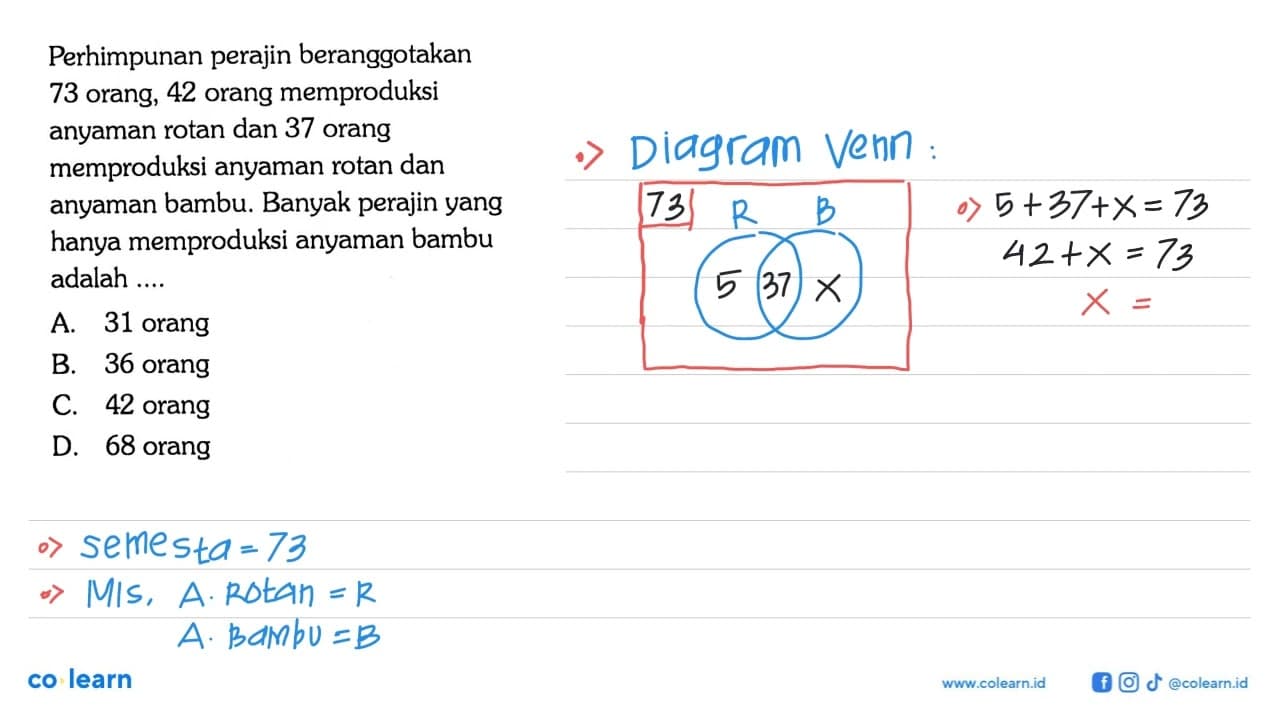 Perhimpunan perajin beranggotakan
73 orang, 42 orang memproduksi
anyaman rotan dan 37 orang
memproduksi anyaman rotan dan
anyaman bambu. Banyak perajin yang
hanya memproduksi anyaman bambu
adalah ....
A. 31 orang
B. 36 orang
C. 42 orang
D. 68 orang
Diagram Venn :
73 R B
5 37 x
5 + 37 + x = 73
42 + x = 73
x =
semesta = 73
Mis, A. Rotan = R
A. Bambu = B
co learn
www.colearn.id
@colearn.id